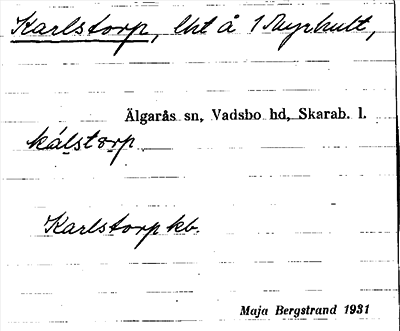 Karlstorp, lht å 1 Myrhult,
Älgarås sn, Vadsbo hd, Skarab. l.
kálstorp
Karlstorp kb.
Maja Bergstrand 1931